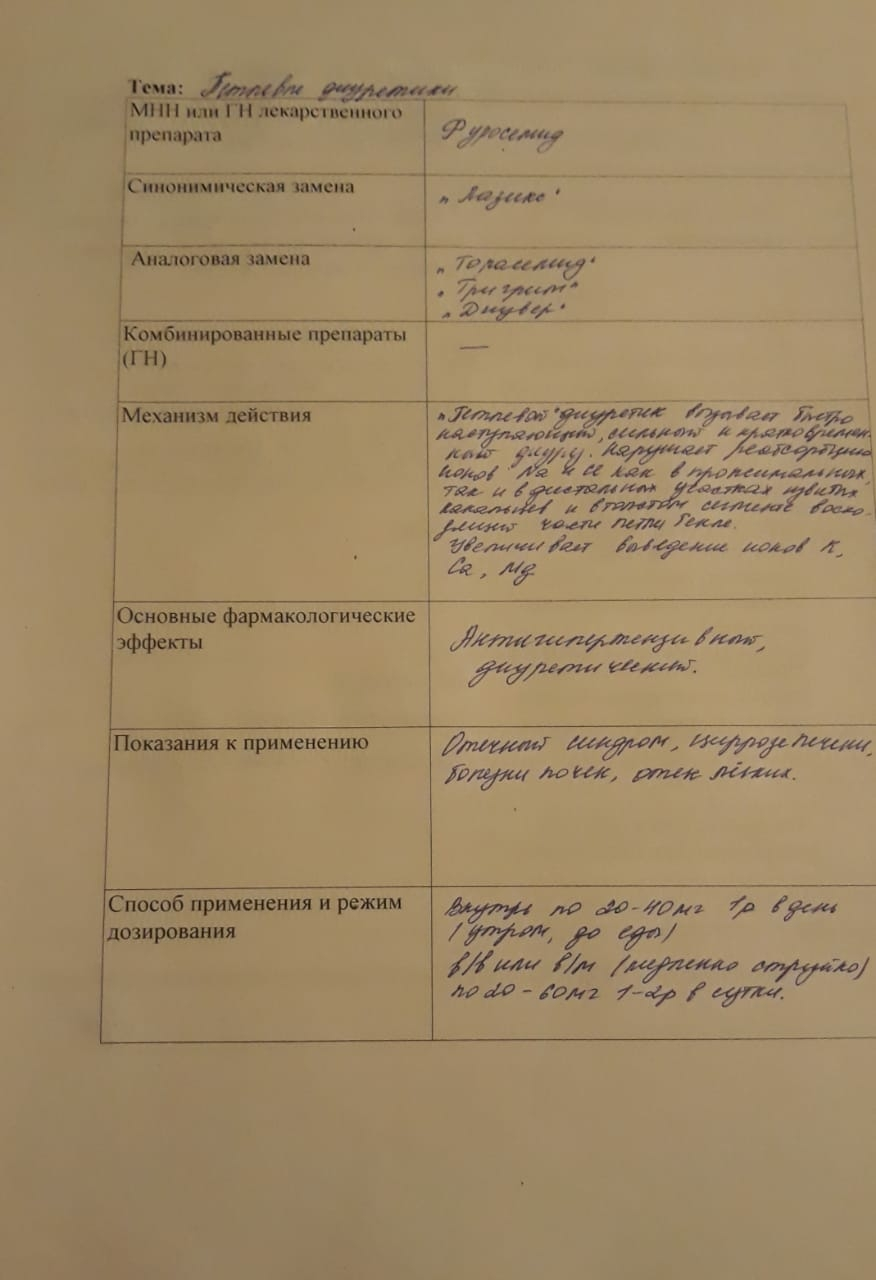 Тема: Петлевые диуретики
МНН или ГН лекарственного
препарата
Фуросемид
Синонимическая замена
„Лазикс"
Аналоговая замена
„Торасемид"
„Тригрим"
„Диувер"
Комбинированные препараты
(ГН)
—
Механизм действия
„Петлевой" диуретик вызывает быстро
наступающий, сильный и кратковремен-
ный диурез. Нарушает реабсорбцию
ионов Na и Cl как в проксимальных,
так и в дистальных участках извитых
канальцев и в толстом сегменте восхо-
дящей части петли Генле.
Увеличивает выведение ионов K,
Ca, Mg
Основные фармакологические
эффекты
Антигипертензивный,
диуретический.
Показания к применению
Отечный синдром, циррозе печени,
болезни почек, отек лёгких.
Способ применения и режим
дозирования
Внутрь по 20-40мг 1р в день
(утром, до еды)
в/в или в/м (медленно струйно)
по 20-60мг 1-2р в сутки.